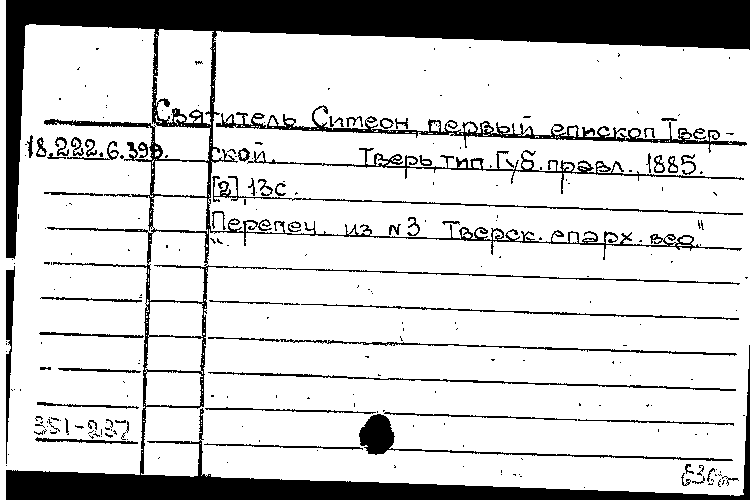 Святитель Симеон, первый епископ Твер-
18.222.6.399. ской. Тверь, тип. Губ. правл., 1885.
[2], 13 с.
Перепеч. из №3 "Тверск. епарх. вед."
351-237